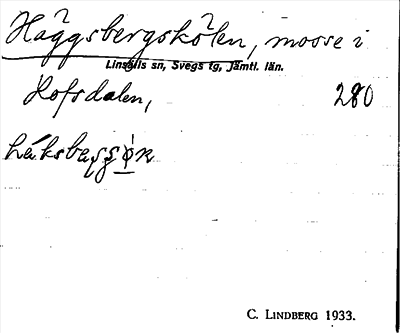 Häggsbergskölen, mosse i
Linsälls sn, Svegs tg, Jämtl. län.
Hofsdalen, 280
C. LINDBERG 1933.